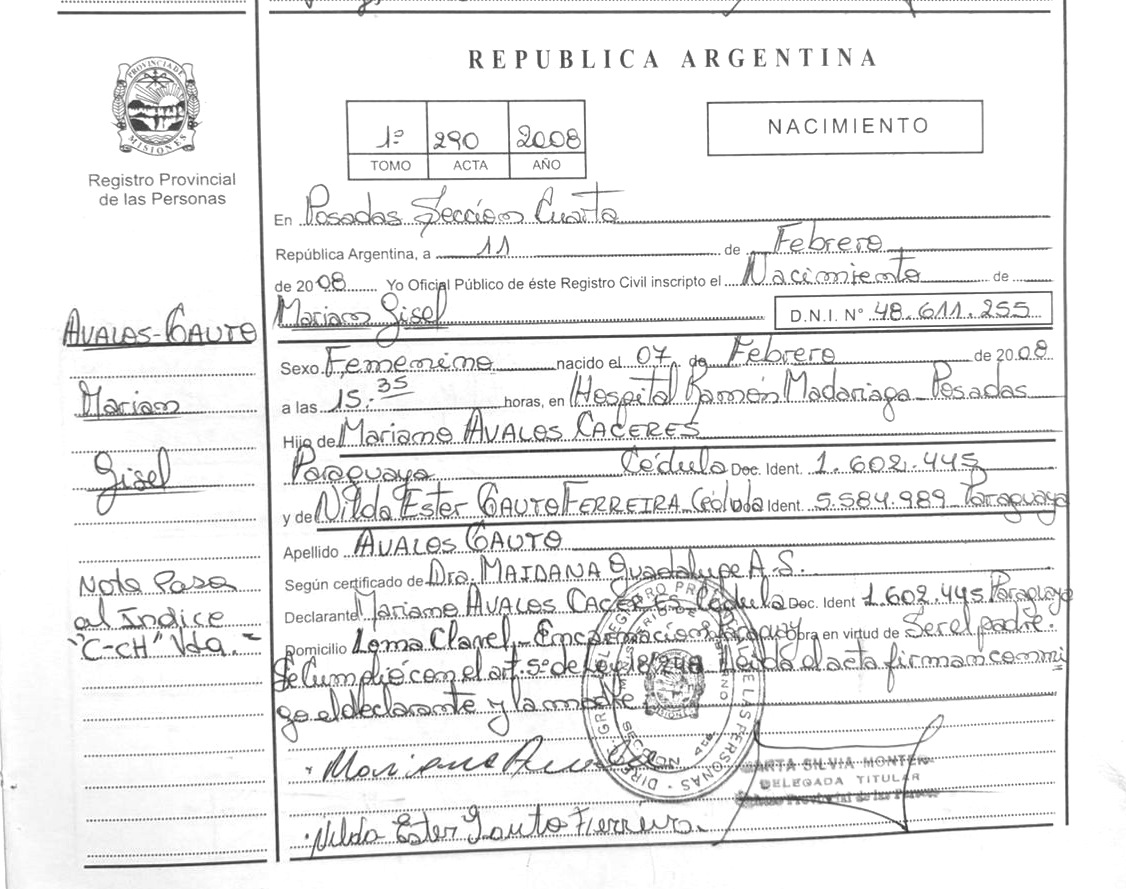 REPUBLICA ARGENTINA
PROVINCIA DE
MISIONES
Registro Provincial
de las Personas
1º 290 2008
TOMO ACTA AÑO
NACIMIENTO
En Posadas Sección Cuarta
República Argentina, a 11 de Febrero
de 2008 Yo Oficial Público de éste Registro Civil inscripto el Nacimiento de
Mariam Gisel D.N.I. Nº 48.611.255
AVALOS-GAUTO
Mariam
Gisel
Sexo Femenino nacido el 07 de Febrero de 2008
a las 15.35 horas, en Hospital Ramón Madariaga Posadas
Hijo de Mariano AVALOS CACERES
Paraguaya Cédula Doc. Ident. 1.602.445
y de Nilda Ester GAUTO FERREIRA Cédula Ident 5.584.989 Paraguaya
Apellido AVALOS GAUTO
Según certificado de Dra. MAIDANA Guadalupe A.S.
Declarante Mariano AVALOS CACERES Cédula Doc. Ident 1.602.445 Paraguaya
Domicilio Loma Clavel - Encarnacion Paraguay Obra en virtud de Ser el padre.
Se Cumplió con el art. 5º de Ley 18/248 Leida el acta firman conmi
go el declarante y la madre
Nota Pasa
al Indice
"C-CH" Vda.=
SECCION 4ta
MARTA SILVIA
DELEGADA TITULAR
Mariano
Nilda Ester Gauto Ferreira.